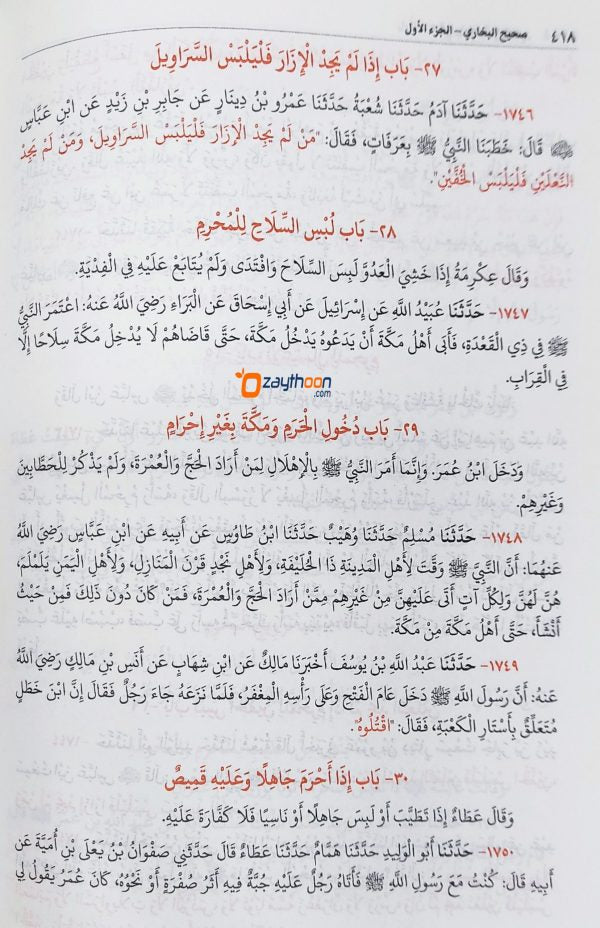 ٤١٨ صحيح البخاري - الجزء الأول
٢٧- بَاب إِذَا لَمْ يَجِدْ الْإِزَارَ فَلْيَلْبَسْ السَّرَاوِيلَ
١٧٤٦- حَدَّثَنَا آدَمُ حَدَّثَنَا شُعْبَةُ حَدَّثَنَا عَمْرُو بْنُ دِينَارٍ عَن جَابِرِ بْنِ زَيْدٍ عَن ابْنِ عَبَّاسٍ
قَالَ: خَطَبَنَا النَّبِيُّ ﷺ بِعَرَفَاتٍ، فَقَالَ: "مَنْ لَمْ يَجِدْ الْإِزَارَ فَلْيَلْبَسْ السَّرَاوِيلَ، وَمَنْ لَمْ يَجِدْ
النَّعْلَيْنِ فَلْيَلْبَسْ الْخُفَّيْنِ".
٢٨- بَاب لُبْسِ السِّلَاحِ لِلْمُحْرِمِ
وَقَالَ عِكْرِمَةُ إِذَا خَشِيَ الْعَدُوَّ لَبِسَ السِّلَاحَ وَافْتَدَى وَلَمْ يُتَابَعْ عَلَيْهِ فِي الْفِدْيَةِ.
١٧٤٧- حَدَّثَنَا عُبَيْدُ اللَّهِ عَن إِسْرَائِيلَ عَن أَبِي إِسْحَاقَ عَن الْبَرَاءِ رَضِيَ اللَّهُ عَنهُ: اعْتَمَرَ النَّبِيُّ
ﷺ فِي ذِي الْقَعْدَةِ، فَأَبَى أَهْلُ مَكَّةَ أَنْ يَدَعُوهُ يَدْخُلُ مَكَّةَ، حَتَّى قَاضَاهُمْ لَا يُدْخِلُ مَكَّةَ سِلَاحًا إِلَّا
فِي الْقِرَابِ.
Ozaythoon
.com
٢٩- بَاب دُخُولِ الْحَرَمِ وَمَكَّةَ بِغَيْرِ إِحْرَامٍ
وَدَخَلَ ابْنُ عُمَرَ. وَإِنَّمَا أَمَرَ النَّبِيُّ ﷺ بِالْإِهْلَالِ لِمَنْ أَرَادَ الْحَجَّ وَالْعُمْرَةَ، وَلَمْ يَذْكُرْ لِلْحَطَّابِينَ
وَغَيْرِهِمْ.
١٧٤٨- حَدَّثَنَا مُسْلِمٌ حَدَّثَنَا وُهَيْبٌ حَدَّثَنَا ابْنُ طَاوُسٍ عَن أَبِيهِ عَن ابْنِ عَبَّاسٍ رَضِيَ اللَّهُ
عَنهُمَا: أَنَّ النَّبِيَّ ﷺ وَقَّتَ لِأَهْلِ الْمَدِينَةِ ذَا الْحُلَيْفَةِ، وَلِأَهْلِ نَجْدٍ قَرْنَ الْمَنَازِلِ، وَلِأَهْلِ الْيَمَنِ يَلَمْلَمَ،
هُنَّ لَهُنَّ وَلِكُلِّ آتٍ أَتَى عَلَيْهِنَّ مِنْ غَيْرِهِمْ مِمَّنْ أَرَادَ الْحَجَّ وَالْعُمْرَةَ، فَمَنْ كَانَ دُونَ ذَلِكَ فَمِنْ حَيْثُ
أَنْشَأَ، حَتَّى أَهْلُ مَكَّةَ مِنْ مَكَّةَ.
١٧٤٩- حَدَّثَنَا عَبْدُ اللَّهِ بْنُ يُوسُفَ أَخْبَرَنَا مَالِكٌ عَن ابْنِ شِهَابٍ عَن أَنَسِ بْنِ مَالِكٍ رَضِيَ اللَّهُ
عَنهُ: أَنَّ رَسُولَ اللَّهِ ﷺ دَخَلَ عَامَ الْفَتْحِ وَعَلَى رَأْسِهِ الْمِغْفَرُ، فَلَمَّا نَزَعَهُ جَاءَ رَجُلٌ فَقَالَ إِنَّ ابْنَ خَطَلٍ
مُتَعَلِّقٌ بِأَسْتَارِ الْكَعْبَةِ، فَقَالَ: "اقْتُلُوهُ".
٣٠- بَاب إِذَا أَحْرَمَ جَاهِلًا وَعَلَيْهِ قَمِيصٌ
وَقَالَ عَطَاءٌ إِذَا تَطَيَّبَ أَوْ لَبِسَ جَاهِلًا أَوْ نَاسِيًا فَلَا كَفَّارَةَ عَلَيْهِ.
١٧٥٠- حَدَّثَنَا أَبُو الْوَلِيدِ حَدَّثَنَا هَمَّامٌ حَدَّثَنَا عَطَاءٌ قَالَ حَدَّثَنِي صَفْوَانُ بْنُ يَعْلَى بْنِ أُمَيَّةَ عَن
أَبِيهِ قَالَ: كُنْتُ مَعَ رَسُولِ اللَّهِ ﷺ فَأَتَاهُ رَجُلٌ عَلَيْهِ جُبَّةٌ فِيهِ أَثَرُ صُفْرَةٍ أَوْ نَحْوُهُ، كَانَ عُمَرُ يَقُولُ لِي